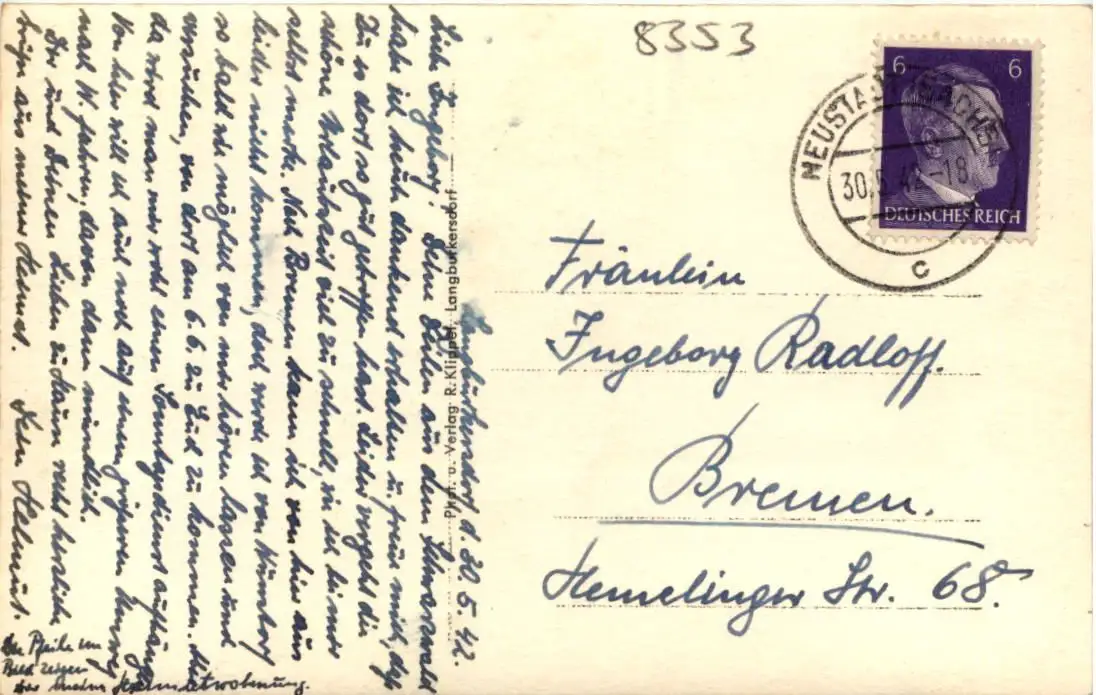 8353
6 6
DEUTSCHES REICH
NEUSTADT (SACHS)
30.5.42-18
c
Fräulein
Ingeborg Radloff.
Bremen.
Hemelinger Str. 68.
Phot. u. Verlag R. Klippel, Langburkersdorf
Langburkersdorf, d. 30.5.42.
Liebe Ingeborg! Deine Zeilen aus dem Schwarzwald
habe ich heute dankend erhalten u. freue mich, daß
Du es dort so gut getroffen hast. Leider vergeht die
schöne Urlaubszeit viel zu schnell, wie ich immer
selbst merke. Nach Bremen kann ich von hier aus
leider nicht kommen, doch werde ich von
so bald wie möglich von mir hören lassen und
versuchen, von dort am 6.6. zu Euch zu kommen.
da wird man mir wohl einen Sonntagsdienst
Von hier will ich auch noch auf einen größeren
mal W. fahren, davon dann mündlich.
Dir und Deinen Lieben zu Haus recht herzliche
Grüße aus meiner Heimat. Dein Helmut.
Die Pfeile im
Bild zeigen
Heimatwohnung.